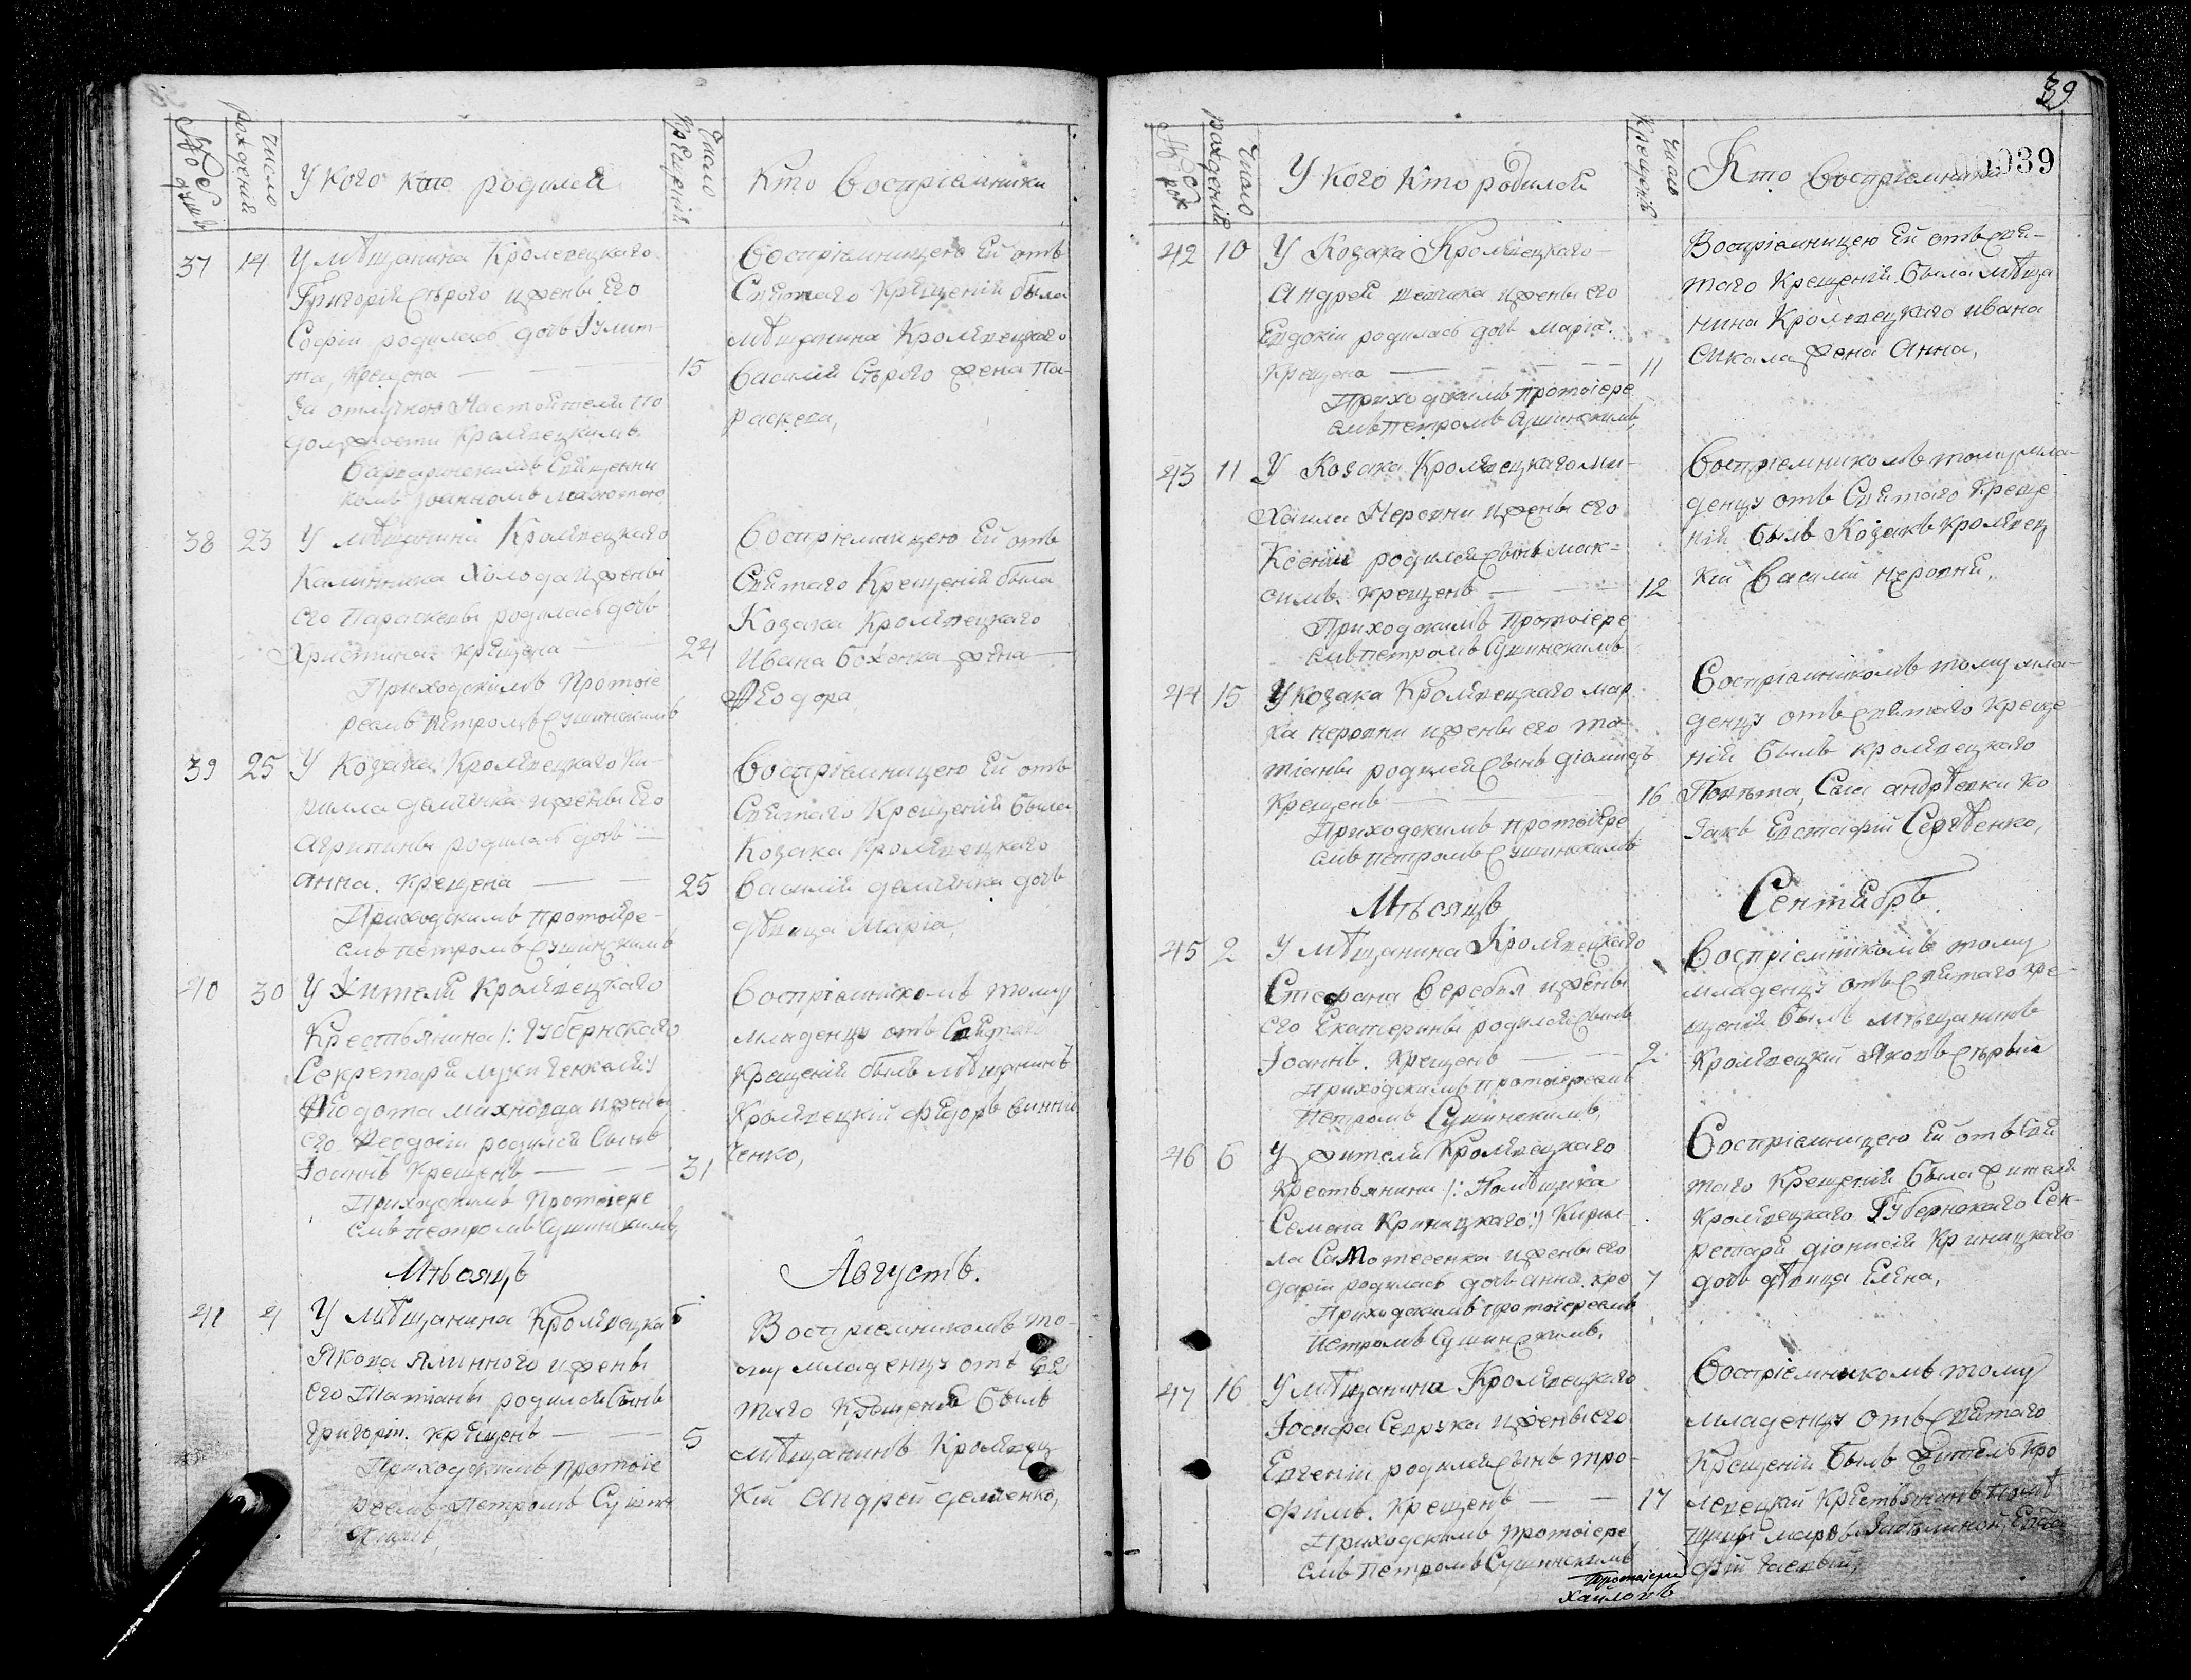 № родившихся
Число рожденій
У кого кто родился
Число крещенія
Кто воспріемники
37
14
У мѣщанина Кролевецкаго
Григорія Сѣрого и жены его
Софіи родилась дочь Іулит-
та, крещена
15
За отлучкою Настоятеля по
должности Кролевецкимъ
Варваринскимъ Священни
комъ Іоанномъ
Воспріемницею ей отъ
Святаго Крещенія была
мѣщанина Кролевецкаго
Василія Сѣрого жена Па-
раскева,
38
23
У мѣщанина Кролевецкаго
Калинника Холода и жены
его Параскевы родилась дочь
Христина крещена
24
Приходскимъ Протоіе
реемъ Петромъ Сушинскимъ
Воспріемницею ей отъ
Святаго Крещенія была
Козака Кролевецкаго
Ивана Боженка жена
Ѳеодора
39
25
У Козака Кролевецкаго Ки-
рила Демченка и жены его
Агрипины родилась дочь
Анна. Крещена
25
Приходскимъ протоіере-
емъ Петромъ Сушинскимъ
Воспріемницею ей отъ
Святаго Крещенія была
Козака Кролевецкаго
Василія Демченка дочь
дѣвица Марія,
40
30
У жителя Кролевецкаго
Крестьянина /: Губернскаго
Секретаря Луки :/
Ѳеодота Махновца и жены
его Ѳеодосіи родился Сынъ
Іоаннъ Крещенъ
31
Приходскимъ Протоіере
емъ Петромъ Сушинскимъ
Воспріемникомъ тому
младенцу отъ Святаго
Крещенія былъ мѣщанинъ
Кролевецкій Федоръ Винни
ченко,
Мѣсяцъ
Августъ.
41
4
У мѣщанина Кролевецка
Якова Ялинного и жены
его Татіаны родился Сынъ
Григорій. крещенъ
5
Приходскимъ протоіе
реемъ Петромъ Сушин
скимъ,
Воспріемникомъ то-
му младенцу отъ Свя
таго Крещенія былъ
мѣщанинъ Кролевец
кій Андрей Деменко,
39
00039
№ род
Число рожденія
У кого кто родился
Число крещенія
Кто воспріемники
42
10
У Козака Кролевецкаго
Андрея и жены его
Евдокіи родилась дочь Марія.
Крещена
11
Приходскимъ протоіере
емъ Петромъ Сушинскимъ,
Воспріемницею ей отъ Свя-
таго Крещенія была мѣща
нина Кролевецкаго Ивана
жена Анна,
43
11
У Козака Кролевецкаго Ми-
хаила Неровни и жены его
Ксеніи родился Сынъ Мак-
симъ. крещенъ
12
Приходскимъ Протоіере
емъ Петромъ Сушинскимъ
Воспріемникомъ тому мла-
денцу отъ Святаго Креще
нія былъ Козакъ Кролевец
кій Василій Неровня,
44
15
У козака Кролевецкаго Мар
ка Неровни и жены его Та-
тіаны родился Сынъ Діомидъ
Крещенъ
16
Приходскимъ протоіере
емъ Петромъ Сушинскимъ
Воспріемникомъ тому мла-
денцу отъ Святаго Креще
нія былъ Кролевецкаго
Повѣта, Села Андрѣевки Ко
закъ Евстафій Сергѣенко,
Мѣсяцъ
Сентябрь
45
2
У мѣщанина Кролевецкаго
Стефана Веребья и жены
его Екатерины родился Сынъ
Іоаннъ. Крещенъ
2
Приходскимъ протоіереемъ
Петромъ Сушинскимъ
Воспріемникомъ тому
младенцу отъ Святаго Кре-
щенія былъ мѣщанинъ
Кролевецкій Яковъ Сѣрый
46
6
У жителя Кролевецкаго
Крестьянина /: Помѣщика
Семена Криницкаго :/ Кирил-
ла Самотесенка и жены его
Даріи родилась дочь Анна. кре
7
Приходскимъ протоіереемъ
Петромъ Сушинскимъ.
Воспріемницею ей отъ Свя
таго Крещенія была жителя
Кролевецкаго Губернскаго Сек-
ретаря Діонисія Криницкаго
дочь дѣвица Елена,
47
16
У мѣщанина Кролевецкаго
Іосифа Севрука и жены его
Евгеніи родился Сынъ Тро-
фимъ. Крещенъ
17
Приходскимъ протоіере
емъ Петромъ Сушинскимъ
Воспріемникомъ тому
младенцу отъ Святаго
Крещенія былъ житель Кро
левецкій Крестьянинъ помѣ
щицы Евста
фій
Протоіерей